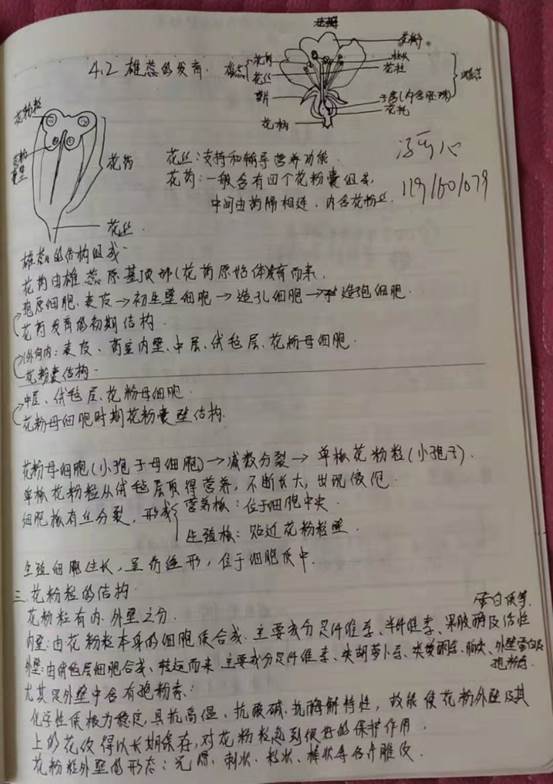 4.2 雄蕊的发育.
花瓣
雄蕊
花药
花丝
萼片
花柄
柱头
花柱
子房(内含胚珠)
花托
雌蕊
花粉粒
花粉囊壁
花药
花丝
花丝:支持和输导营养功能.
花药:一般含有四个花粉囊组成,
中间由药隔相连,内含花粉粒.
1191601079
雄蕊的结构组成
花药由雄蕊原基顶部(花药原始体发育而来.
孢原细胞、表皮→初生壁细胞→造孢细胞
花药发育的初期结构.
(外向内:表皮、药室内壁、中层、绒毡层、花粉母细胞.
花粉囊结构.
中层、绒毡层、花粉母细胞
花粉母细胞时期花粉囊壁结构.
花粉母细胞(小孢子母细胞)→减数分裂→单核花粉粒(小孢子).
单核花粉粒从绒毡层取得营养,不断长大,出现液泡
细胞核有丝分裂,形成
营养核:位于细胞中央.
生殖核:贴近花粉粒壁.
生殖细胞 位于细胞质中.
三.花粉粒的结构
花粉粒有内、外壁之分.
蛋白质等.
内壁:由花粉粒本身的细胞质合成.主要成分是纤维素、半纤维素、果胶酶及活性
外壁:由绒毡层细胞合成、转运而来.主要成分是纤维素、类胡萝卜素、类黄酮素、脂类、外壁蛋白及
孢粉素.
尤其是外壁中含有孢粉素:
化学性质极为稳定,具抗高温、抗酸碱、抗酶解特性,故能使花粉外壁及其
上的花纹得以长期保存,对花粉粒起到很好的保护作用.
花粉粒外壁的形态:光滑、刺状、粒状、棒状等各种雕纹.